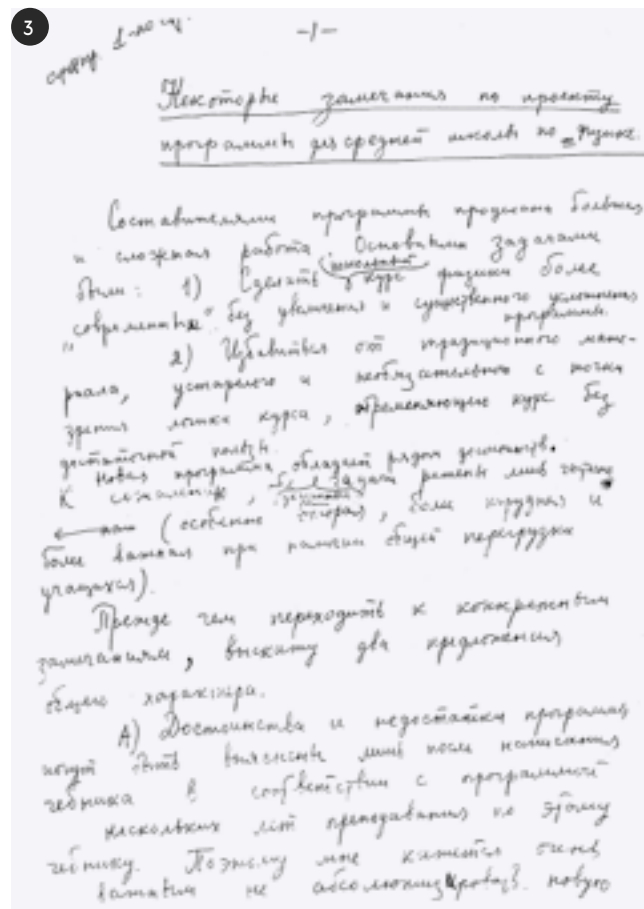 3
-1-
Некоторые замечания по проекту
программы для средней школы по физике.
Составителями программы проделана большая
и сложная работа. Основными задачами
были: 1) Сделать школьный курс физики более
"современным" без увеличения и существенного усложнения
программы.
2) Избавиться от традиционного мате-
риала, устарелого и необязательного с точки
зрения логики курса, обременяющего курс без
достаточной пользы.
Новая программа обладает рядом достоинств.
К сожалению, обе задачи решены лишь
(особенно вторая, более трудная и
более важная при наличии общей перегрузки
учащихся).
Прежде чем переходить к конкретным
замечаниям, выскажу два предложения
общего характера.
А) Достоинства и недостатки программы
могут быть выяснены лишь после написания
учебника в соответствии с программой
нескольких лет преподавания по этому
учебнику. Поэтому мне кажется очень
важным не новую